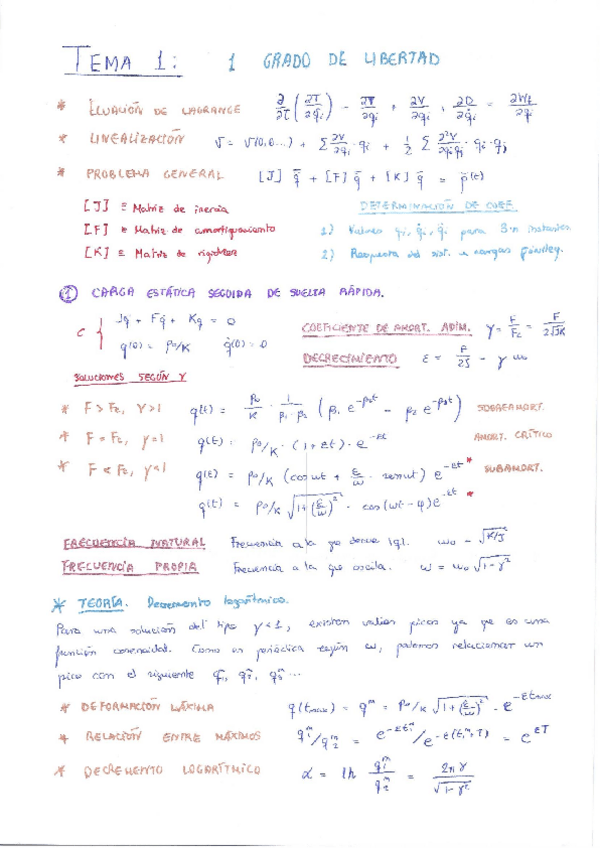 TEMA 1: 1 GRADO DE LIBERTAD
* ECUACIÓN DE LAGRANGE ∂/∂t (∂T/∂q̇i) - ∂T/∂qi + ∂V/∂qi + ∂D/∂q̇i = ∂W/∂qi
* LINEALIZACIÓN V = V(0,0...) + Σ ∂V/∂qi · qi + 1/2 Σ ∂²V/∂qi∂qj · qi · qj
* PROBLEMA GENERAL [J] q̈ + [F] q̇ + [K] q̄ = p̄(t)
[J] ≡ Matriz de inercia DETERMINACIÓN DE COEF.
[F] ≡ Matriz de amortiguamiento 1) Valores qi, q̇i, q̈i para 3n instantes
[K] ≡ Matriz de rigidez 2) Respuesta del sist. a cargas
① CARGA ESTÁTICA SEGUIDA DE SUELTA RÁPIDA.
C { Jq̈ + Fq̇ + Kq = 0 COEFICIENTE DE AMORT. ADIM. γ = F/Fc = F/2√JK
q(0) = p0/K q̇(0) = 0 DECRECIMIENTO ε = F/2J = γ ω0
SOLUCIONES SEGÚN γ
* F > Fc, γ>1 q(t) = p0/K · 1/β1-β2 (β1 e^-β2t - β2 e^-β1t) SOBREAMORT.
* F = Fc, γ=1 q(t) = p0/K · (1+εt) · e^-εt AMORT. CRÍTICO
* F < Fc, γ<1 q(t) = p0/K (cos ωt + ε/ω · sen ωt) e^-εt * SUBAMORT.
q(t) = p0/K √1+(ε/ω)² · cos(ωt-φ) e^-εt *
FRECUENCIA NATURAL Frecuencia a la que ω0 = √K/J
FRECUENCIA PROPIA Frecuencia a la que oscila. ω = ω0 √1-γ²
* TEORÍA. Decremento logarítmico.
Para una solución del tipo γ<1, existen varios picos ya que es una
función cosenoidal. Como es periódica según ω, podemos relacionar un
pico con el siguiente q1, q2^m, q3^m ...
* DEFORMACIÓN MÁXIMA q(tmax) = q^m = p0/K √1+(ε/ω)² · e^-εtmax
* RELACIÓN ENTRE MÁXIMOS q1^m/q2^m = e^-εt1^m / e^-ε(t1^m+T) = e^εT
* DECREMENTO LOGARÍTMICO α = ln q1^m/q2^m = 2πγ/√1-γ²